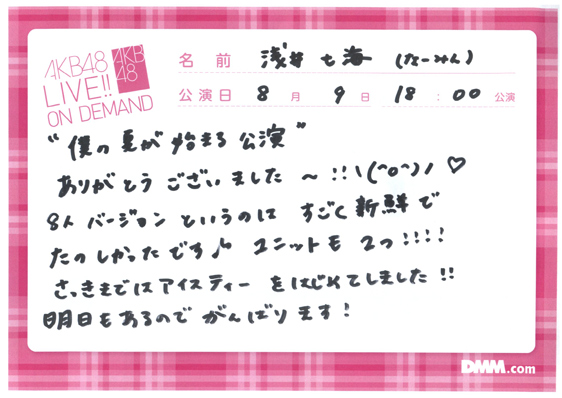 AKB48
LIVE!!
ON DEMAND
AKB
48
名前 浅井七海 (なーみん)
公演日 8月9日 18:00公演
"僕の夏が始まる公演"
ありがとうございました～!!\(^o^)/♡
8人バージョンというのはすごく新鮮で
たのしかったです♪ ユニットも2つ!!!!
さっきまではアイスティーをはじめてしました!!
明日もあるのでがんばります!
DMM.com